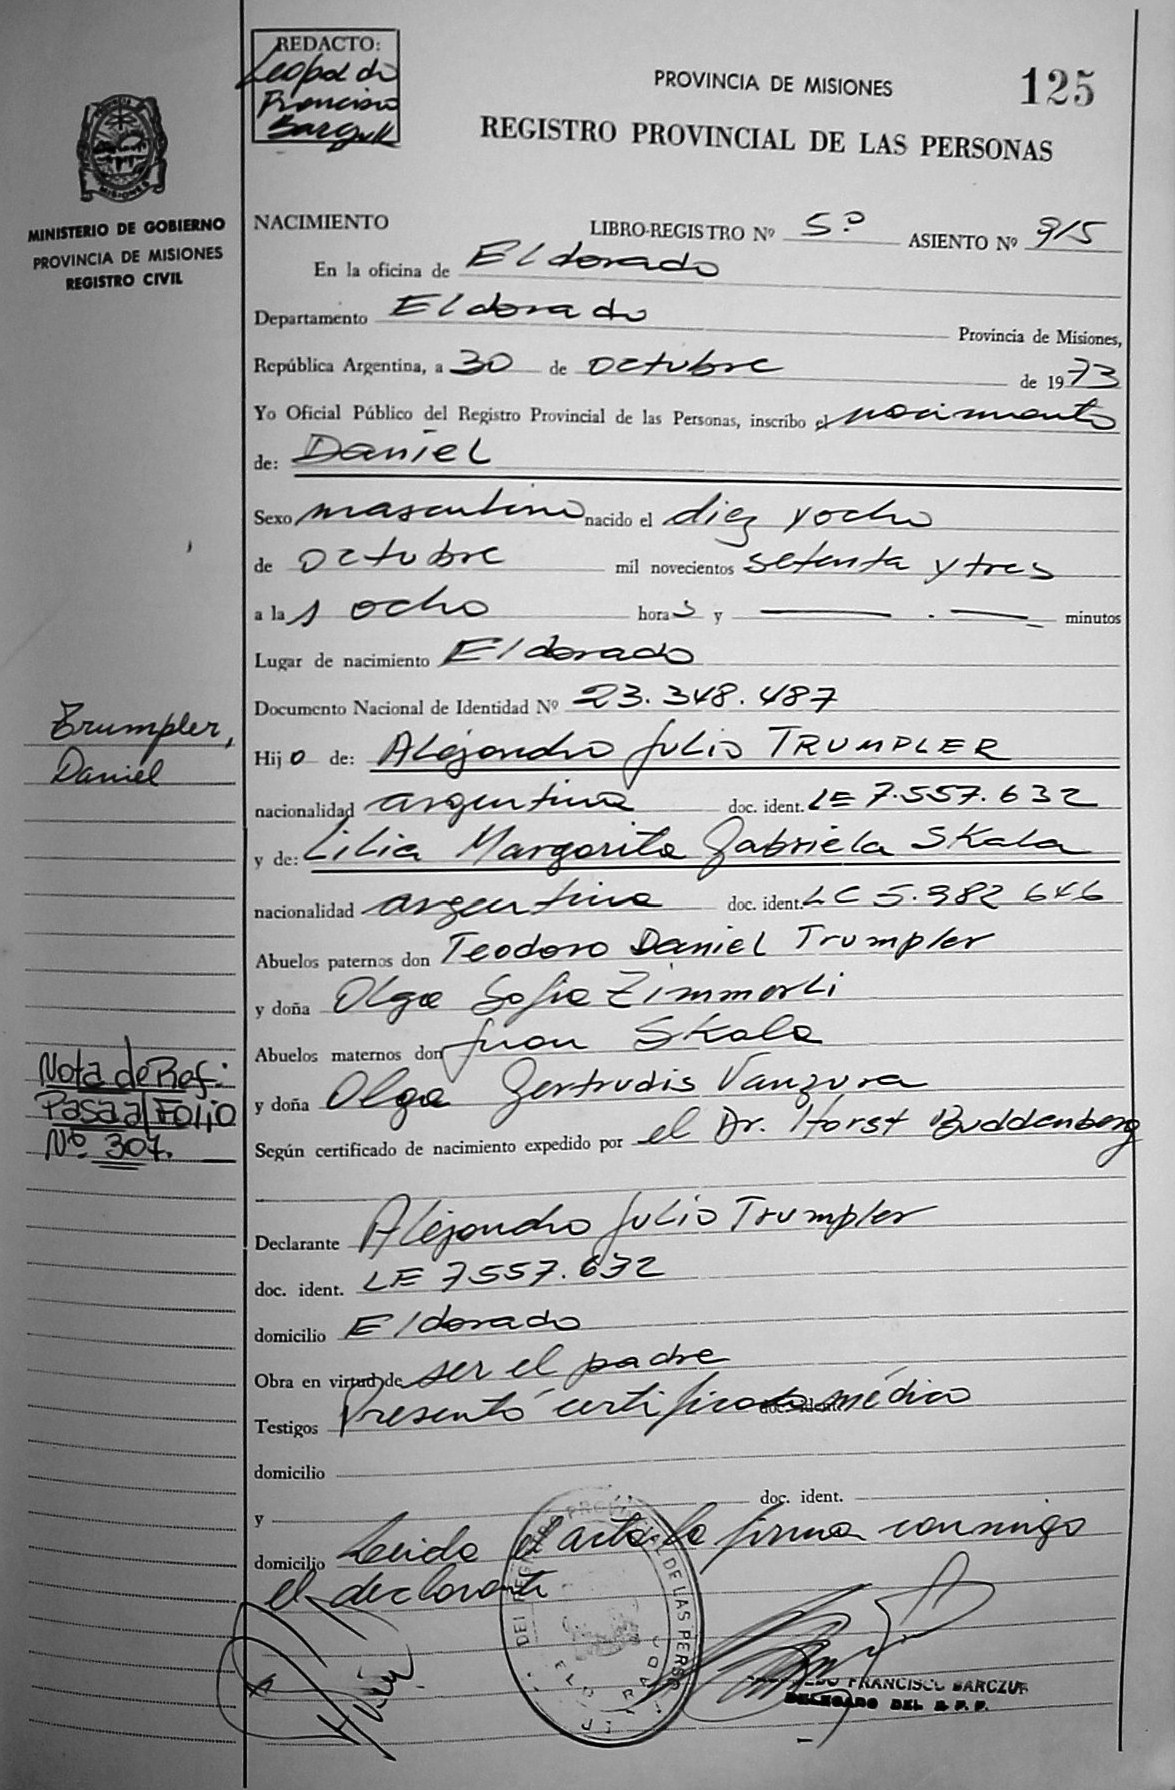 REDACTO:
Leopoldo
Francisco
PROVINCIA DE MISIONES
125
REGISTRO PROVINCIAL DE LAS PERSONAS
MISIONES
MINISTERIO DE GOBIERNO
PROVINCIA DE MISIONES
REGISTRO CIVIL
NACIMIENTO LIBRO-REGISTRO Nº 5º ASIENTO Nº 915
En la oficina de Eldorado
Departamento Eldorado Provincia de Misiones,
República Argentina, a 30 de octubre de 1973
Yo Oficial Público del Registro Provincial de las Personas, inscribo el nacimiento
de: Daniel
Sexo masculino nacido el diez y ocho
de octubre mil novecientos setenta y tres
a las ocho horas y — . — minutos
Lugar de nacimiento Eldorado
Documento Nacional de Identidad Nº 23.348.487
Trumpler,
Daniel
Hijo de: Alejandro Julio TRUMPLER
nacionalidad argentina doc. ident. LE 7.557.632
y de: Lilia Margarita Gabriela Skala
nacionalidad argentina doc. ident. LC 5.982 646
Abuelos paternos don Teodoro Daniel Trumpler
y doña Olga Sofia Zimmerli
Abuelos maternos don Juan Skala
y doña Olga Gertrudis Vanzura
Nota de Ref:
Pasa al Folio
Nº 307.
Según certificado de nacimiento expedido por el Dr. Horst Buddenberg
Declarante Alejandro Julio Trumpler
doc. ident. LE 7557.632
domicilio Eldorado
Obra en virtud de ser el padre
Testigos Presentó certificado médico doc. ident.
domicilio
y doc. ident.
domicilio Leida el acta la firma conmigo
el declarante
DEL REGISTRO PROVINCIAL DE LAS PERSONAS
ELDORADO
FRANCISCO BARCZUK
DELEGADO DEL R.P.P.